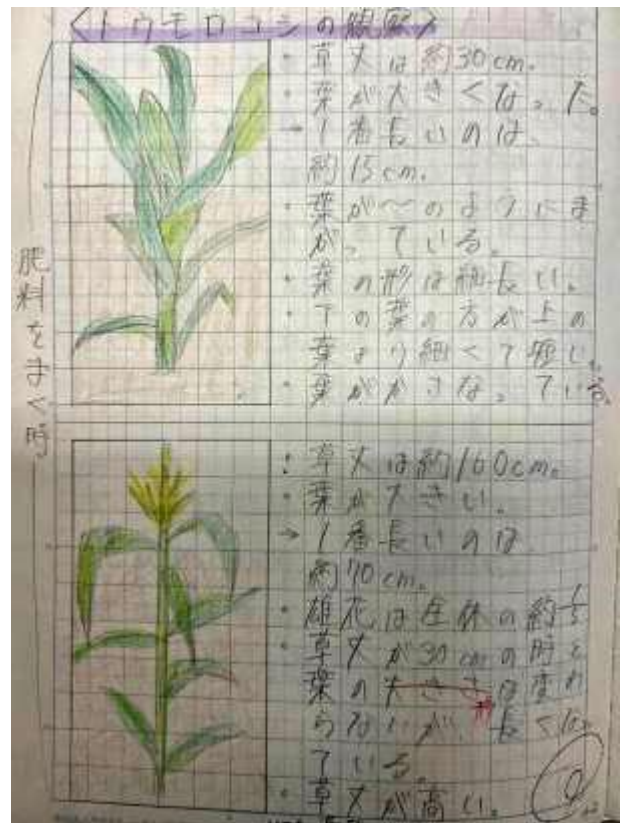 〈トウモロコシの観察〉
肥料をまく時
・草丈は約30cm。
・葉が大きくなった。
→1番長いのは、
約15cm。
・葉が〜のようにま
がっている。
・葉の形は細長い。
・下の葉の方が上の
葉より細くて短い。
・葉がかさなっている。
・草丈は約160cm。
・葉が大きい。
→1番長いのは
約70cm。
・雄花は全体の約1/5
・草丈が30cmの時と
葉の大きさは変わ
らないが、長くなっ
ている。
・草丈が高い。